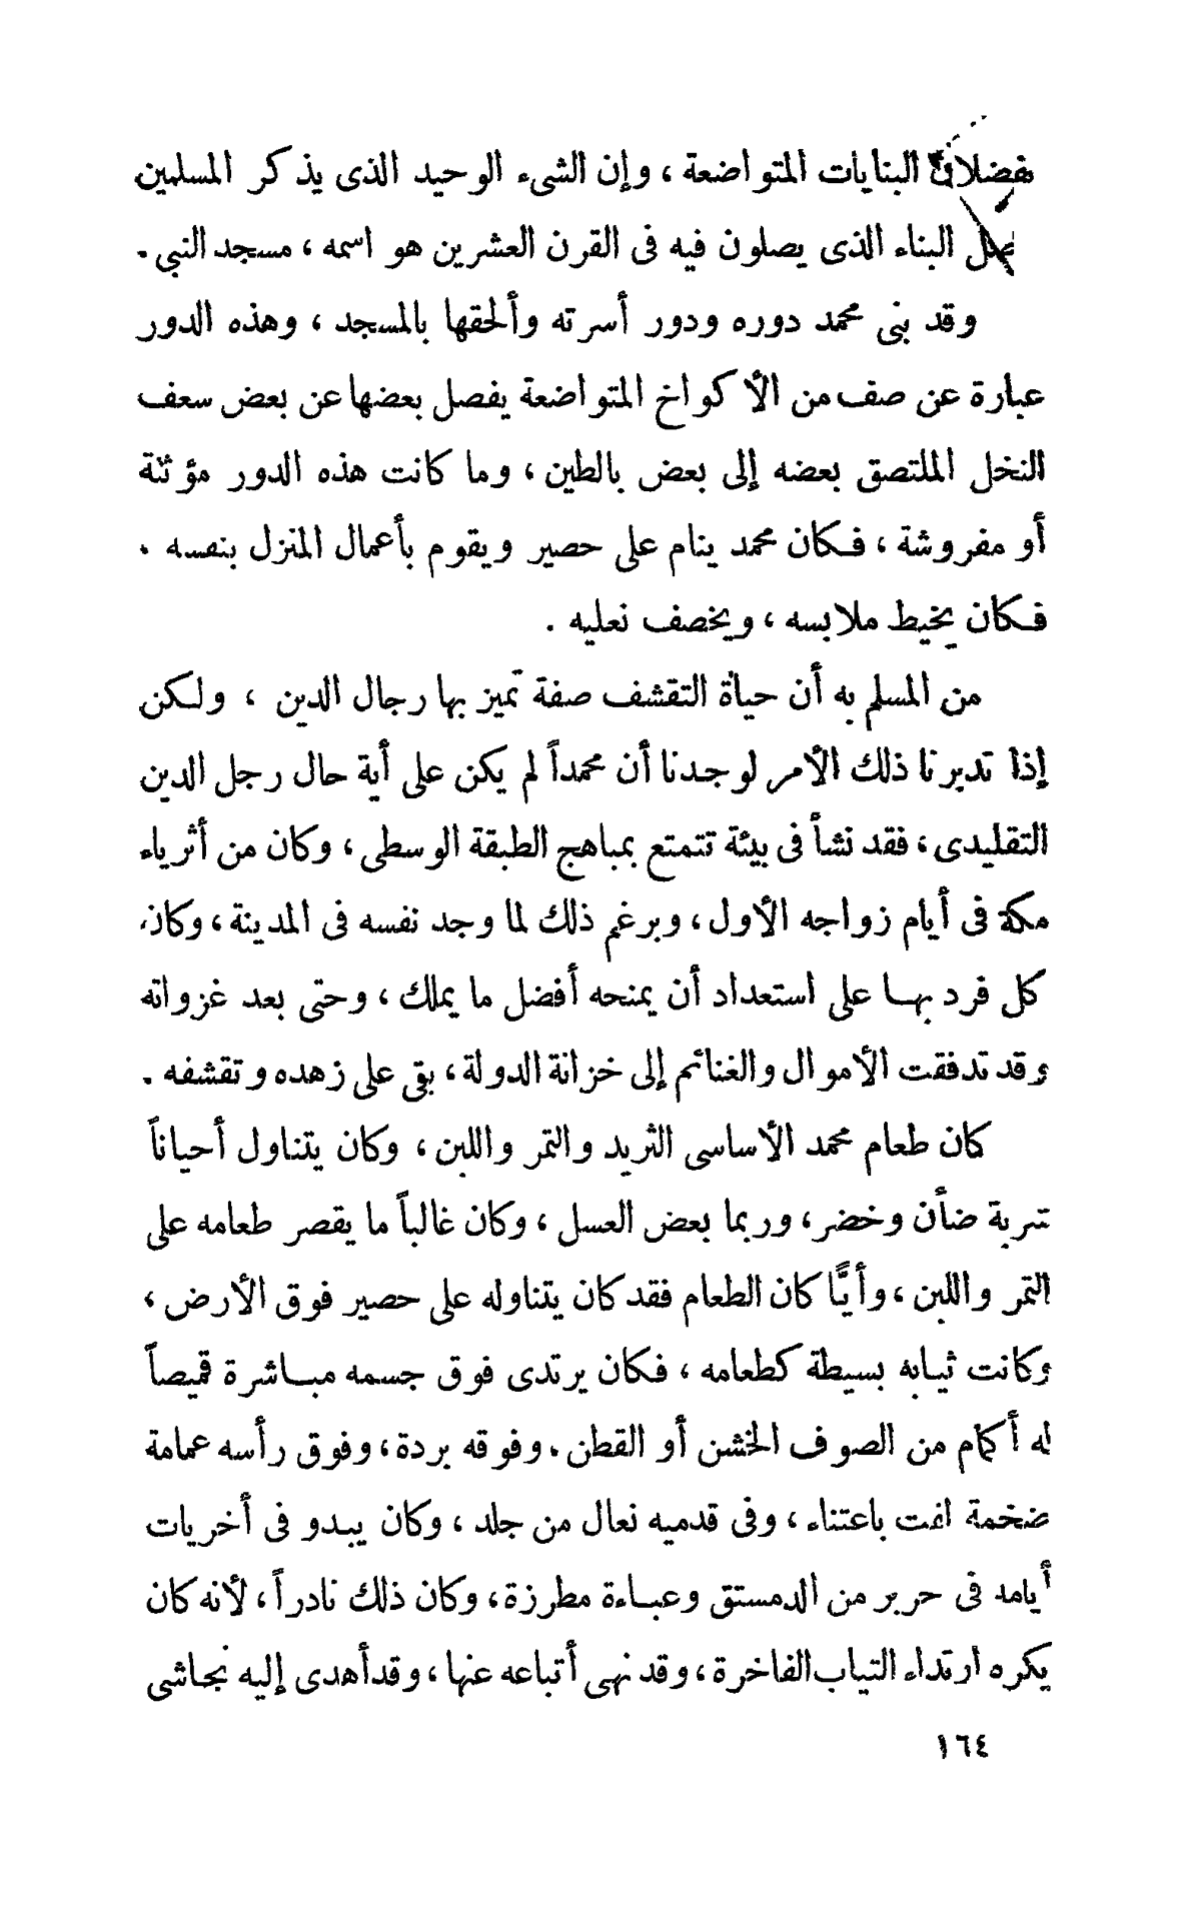 البنايات المتواضعة ، وإن الشىء الوحيد الذى يذكر المسلمين
البناء الذى يصلون فيه فى القرن العشرين هو اسمه ، مسجد النبي .
وقد بنى محمد دوره ودور أسرته وألحقها بالمسجد ، وهذه الدور
عبارة عن صف من الأكواخ المتواضعة يفصل بعضها عن بعض سعف
النخل الملتصق بعضه إلى بعض بالطين ، وما كانت هذه الدور مؤثثة
أو مفروشة ، فكان محمد ينام على حصير ويقوم بأعمال المنزل بنفسه .
فكان يخيط ملابسه ، ويخصف نعليه .
من المسلم به أن حياة التقشف صفة تميز بها رجال الدين ، ولكن
إذا تدبرنا ذلك الأمر لوجدنا أن محمداً لم يكن على أية حال رجل الدين
التقليدى ، فقد نشأ فى بيئة تتمتع بمباهج الطبقة الوسطى ، وكان من أثرياء
مكة فى أيام زواجه الأول ، وبرغم ذلك لما وجد نفسه فى المدينة ، وكان
كل فرد بها على استعداد أن يمنحه أفضل ما يملك ، وحتى بعد غزواته
وقد تدفقت الأموال والغنائم إلى خزانة الدولة ، بقى على زهده وتقشفه .
كان طعام محمد الأساسى الثريد والتمر واللبن ، وكان يتناول أحياناً
شربة ضأن وخضر ، وربما بعض العسل ، وكان غالباً ما يقصر طعامه على
التمر واللبن ، وأيًّا كان الطعام فقد كان يتناوله على حصير فوق الأرض ،
وكانت ثيابه بسيطة كطعامه ، فكان يرتدى فوق جسمه مباشرة قميصاً
له أكمام من الصوف الخشن أو القطن . وفوقه بردة ، وفوق رأسه عمامة
ضخمة لفت باعتناء ، وفى قدميه نعال من جلد ، وكان يبدو فى أخريات
أيامه فى حرير من الدمستق وعباءة مطرزة ، وكان ذلك نادراً ، لأنه كان
يكره ارتداء الثياب الفاخرة ، وقد نهى أتباعه عنها ، وقد أهدى إليه نجاشى
١٦٤